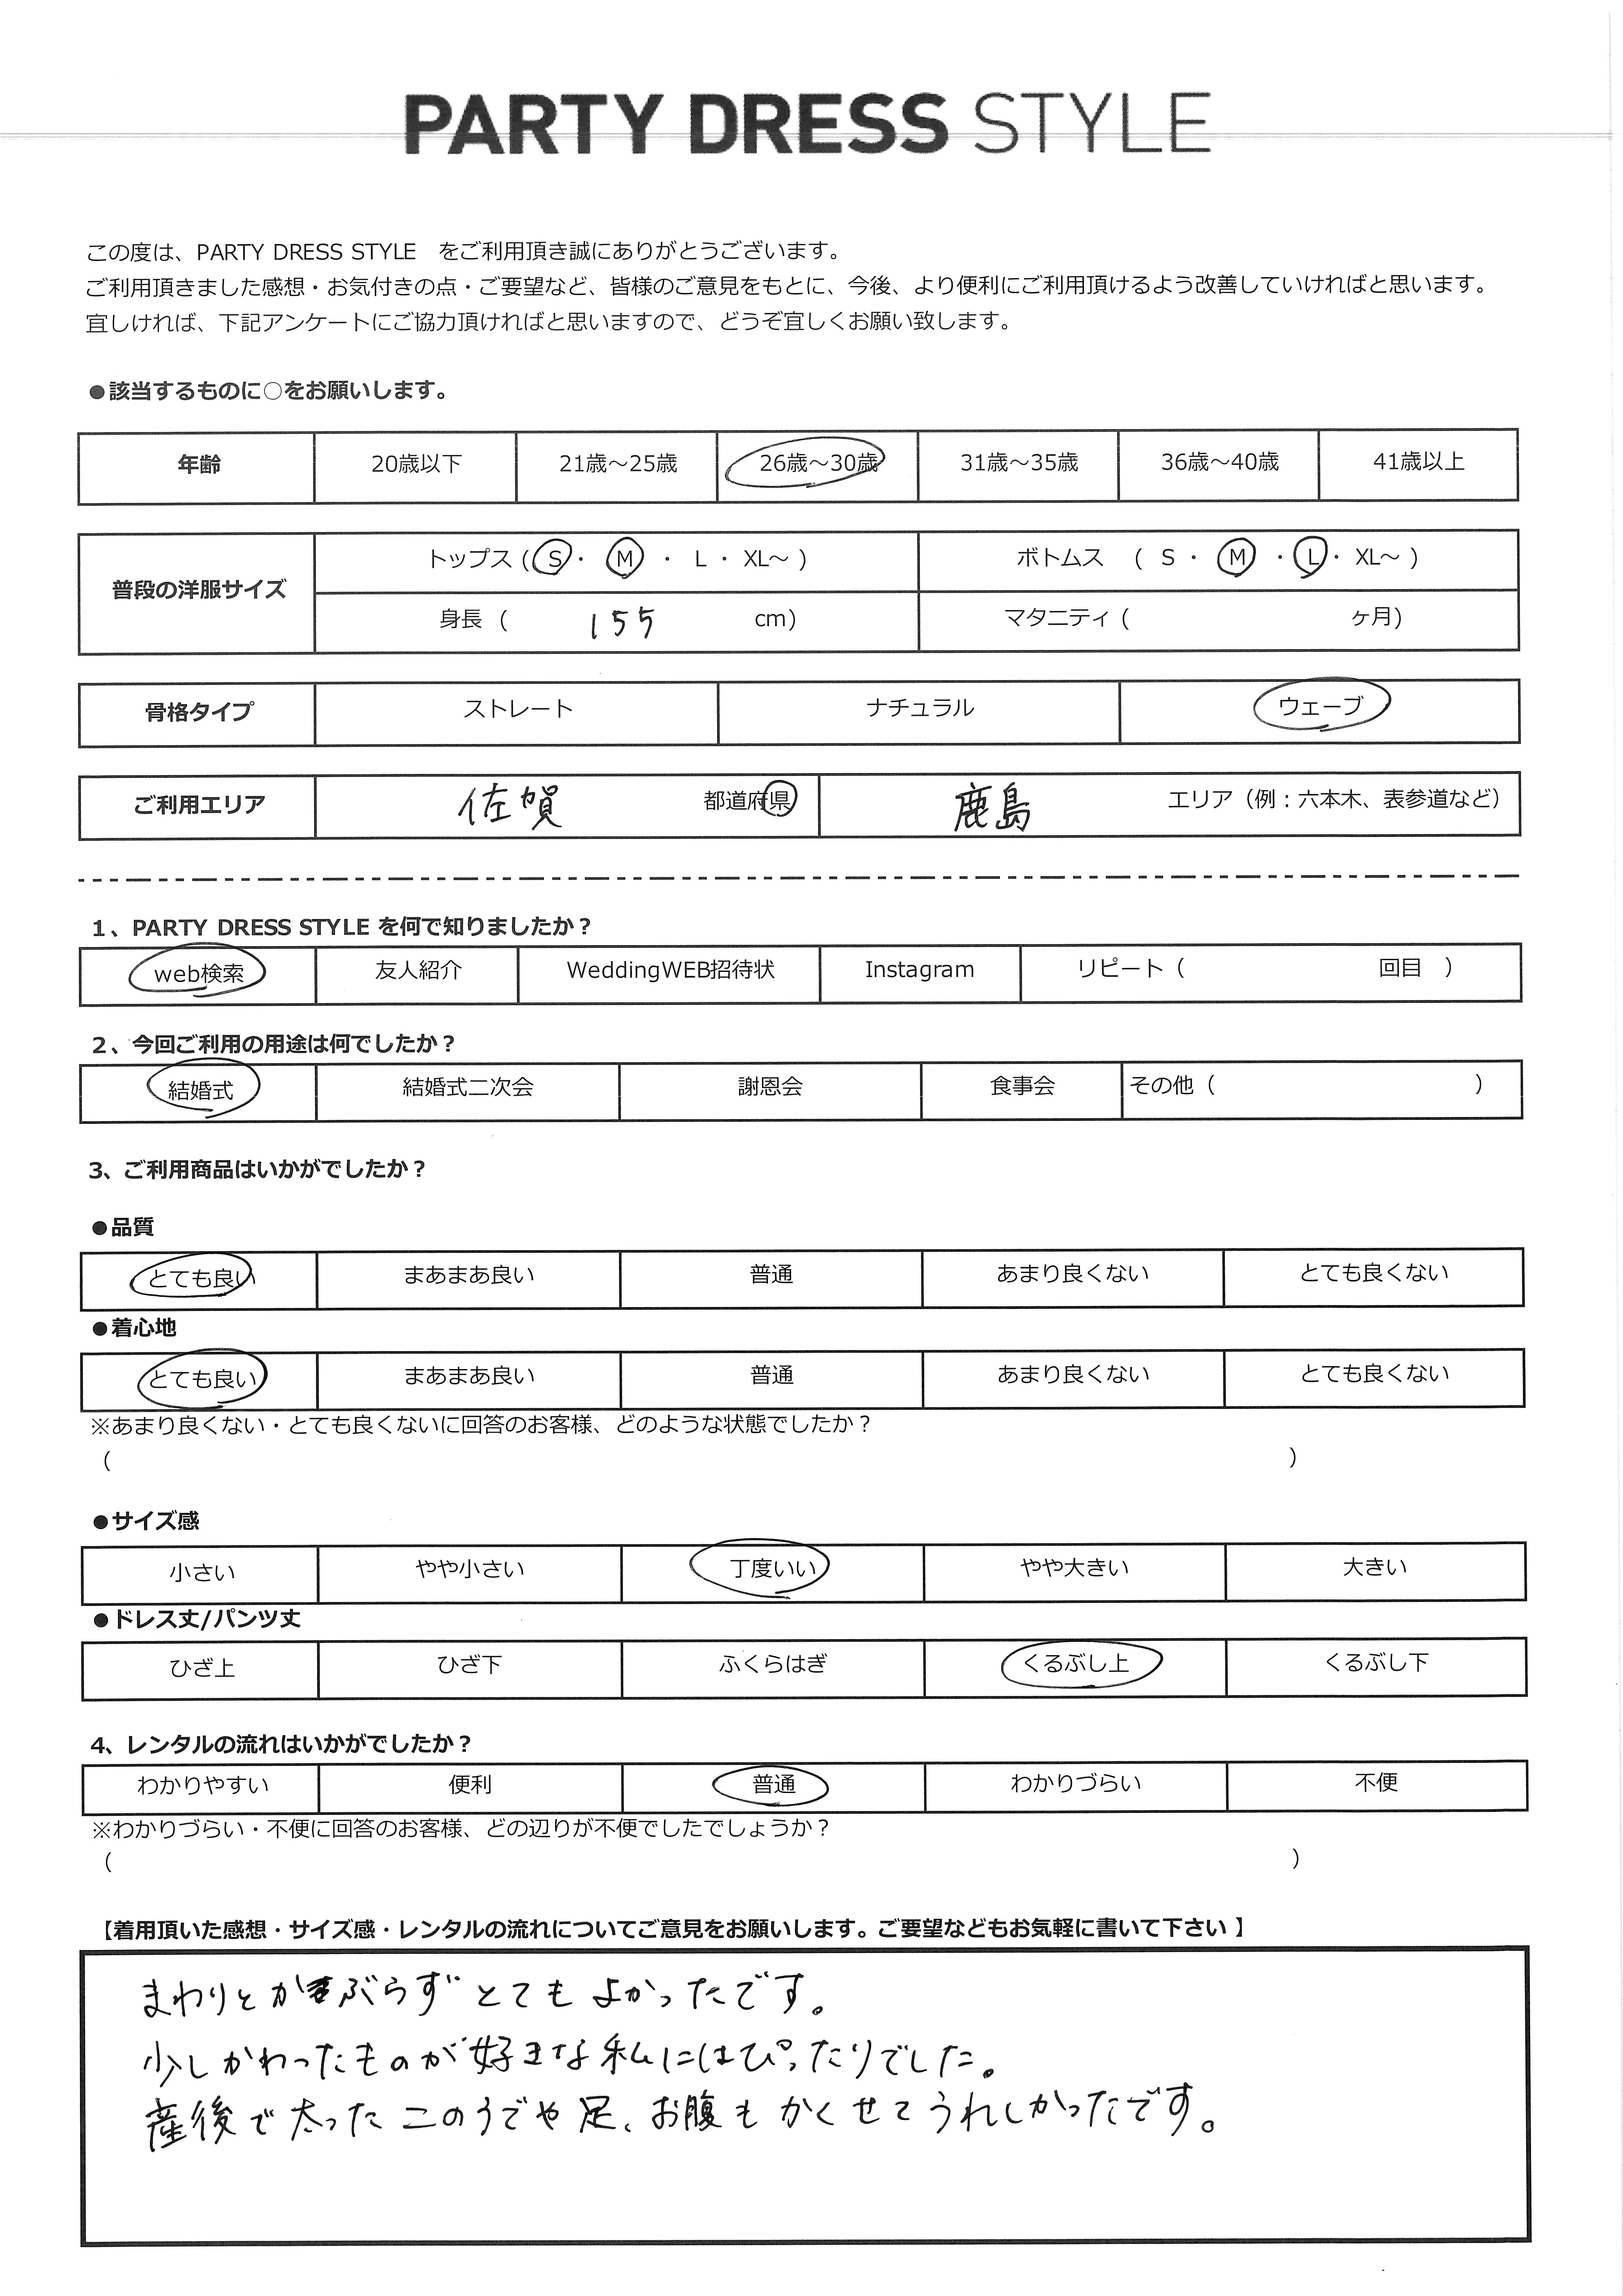 PARTY DRESS STYLE
この度は、PARTY DRESS STYLE　をご利用頂き誠にありがとうございます。
ご利用頂きました感想・お気付きの点・ご要望など、皆様のご意見をもとに、今後、より便利にご利用頂けるよう改善していければと思います。
宜しければ、下記アンケートにご協力頂ければと思いますので、どうぞ宜しくお願い致します。
●該当するものに○をお願いします。
年齢 20歳以下 21歳～25歳 26歳～30歳 31歳～35歳 36歳～40歳 41歳以上
普段の洋服サイズ
トップス ( S ・ M ・ L ・ XL～ ) ボトムス ( S ・ M ・ L ・ XL～ )
身長 ( 155 cm) マタニティ ( ヶ月)
骨格タイプ ストレート ナチュラル ウェーブ
ご利用エリア 佐賀 都道府県 鹿島 エリア（例：六本木、表参道など）
1、PARTY DRESS STYLE を何で知りましたか？
web検索 友人紹介 WeddingWEB招待状 Instagram リピート（ 回目 ）
2、今回ご利用の用途は何でしたか？
結婚式 結婚式二次会 謝恩会 食事会 その他（ ）
3、ご利用商品はいかがでしたか？
●品質
とても良い まあまあ良い 普通 あまり良くない とても良くない
●着心地
とても良い まあまあ良い 普通 あまり良くない とても良くない
※あまり良くない・とても良くないに回答のお客様、どのような状態でしたか？
（ ）
●サイズ感
小さい やや小さい 丁度いい やや大きい 大きい
●ドレス丈/パンツ丈
ひざ上 ひざ下 ふくらはぎ くるぶし上 くるぶし下
4、レンタルの流れはいかがでしたか？
わかりやすい 便利 普通 わかりづらい 不便
※わかりづらい・不便に回答のお客様、どの辺りが不便でしたでしょうか？
（ ）
【着用頂いた感想・サイズ感・レンタルの流れについてご意見をお願いします。ご要望などもお気軽に書いて下さい 】
まわりとかぶらずとてもよかったです。
少しかわったものが好きな私にはぴったりでした。
産後で太ったこのうでや足、お腹もかくせてうれしかったです。